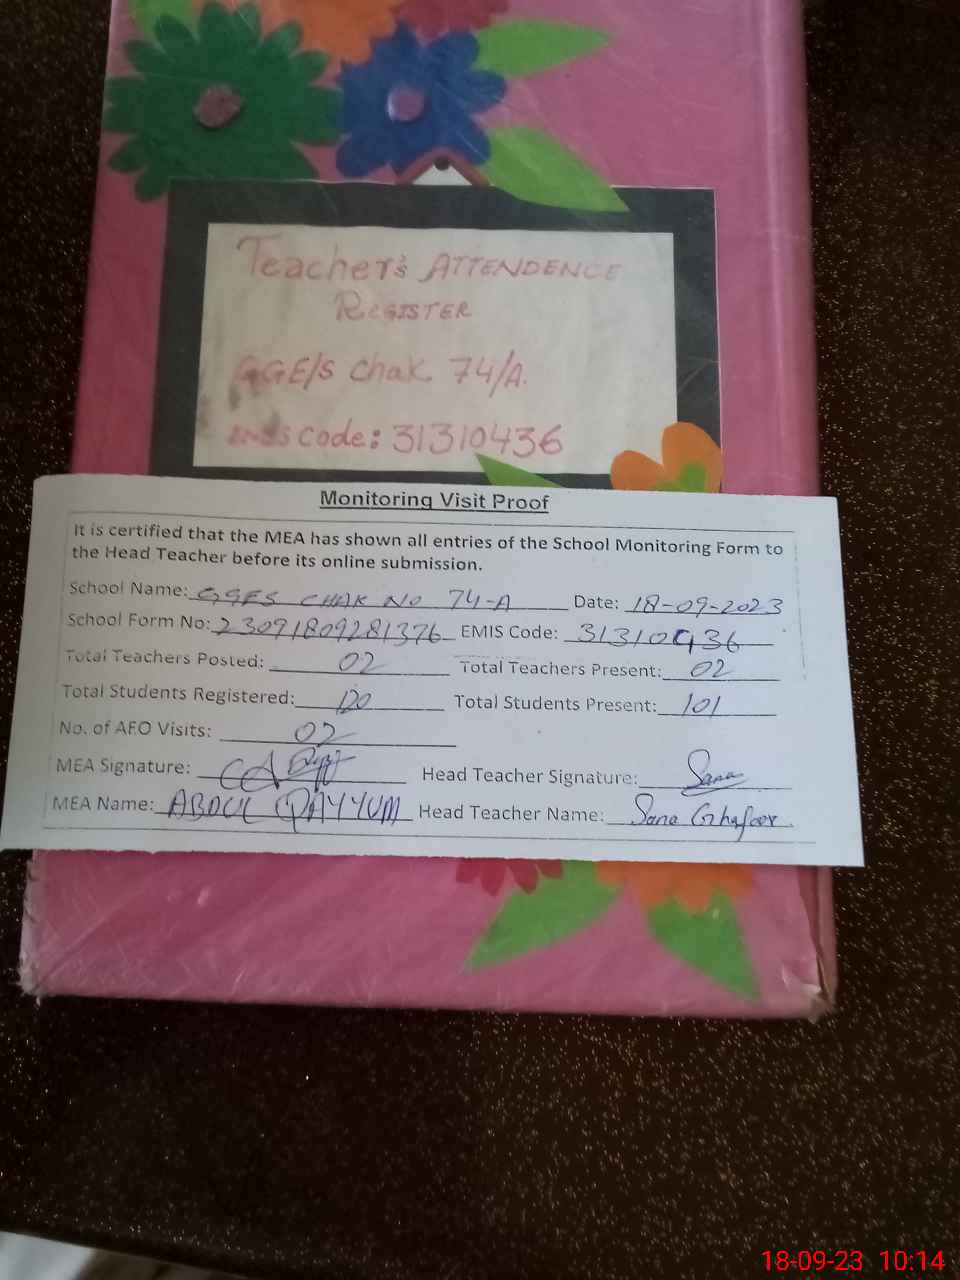 Teacher's ATTENDENCE
REGISTER
GGE/S Chak 74/A.
EMIS Code: 31310436
Monitoring Visit Proof
It is certified that the MEA has shown all entries of the School Monitoring Form to
the Head Teacher before its online submission.
School Name: GGES CHAK NO 74-A Date: 18-09-2023
School Form No: 23091809281376 EMIS Code: 31310436
Total Teachers Posted: 02 Total Teachers Present: 02
Total Students Registered: 120 Total Students Present: 101
No. of AEO Visits: 02
MEA Signature: Head Teacher Signature: Sana
MEA Name: ABDUL QAYYUM Head Teacher Name: Sana Ghafoor
18-09-23 10:14